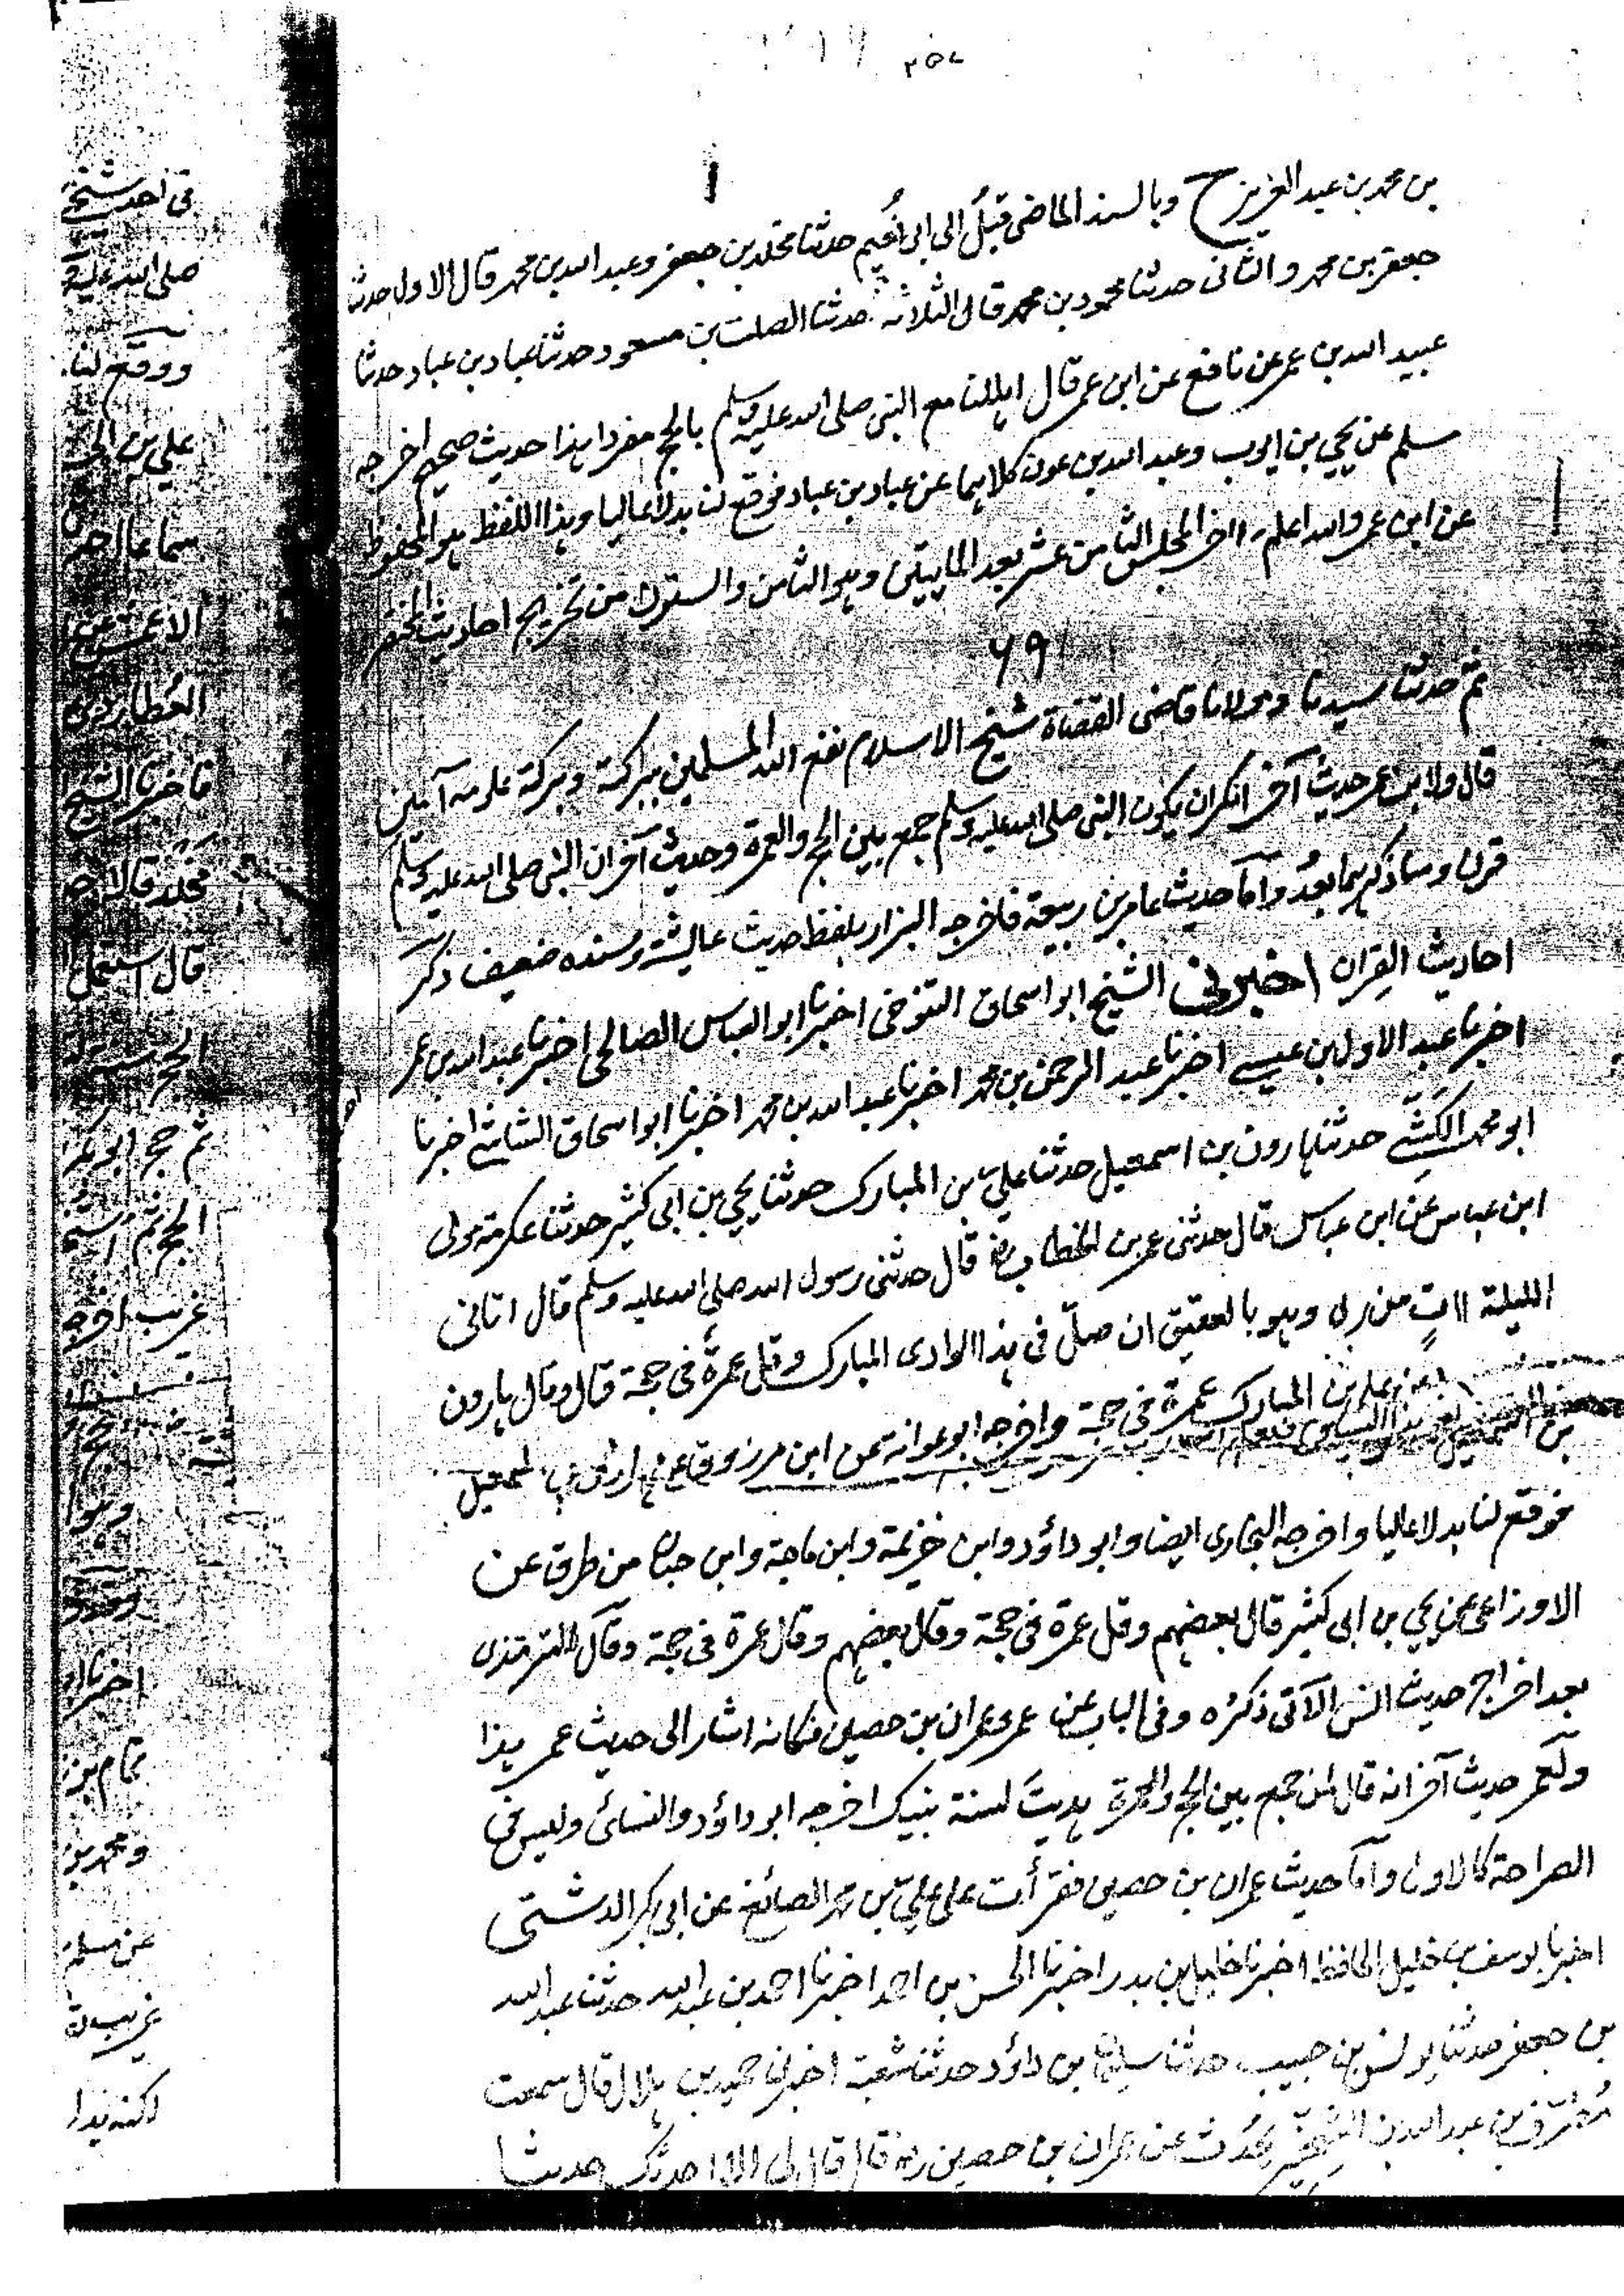 ٢٥٧
بن محمد بن عبد العزيز ح وبالسند الماضى قبل الى ابى نُعيم حدثنا مخلد بن جعفر وعبد الله بن محمد قال الاول حدثنا
جعفر بن محمد والثانى حدثنا محمود بن محمد قال الثلاثة حدثنا الصلت بن مسعود حدثنا عباد بن عباد حدثنا
عبيد الله بن عمر عن نافع عن ابن عمر قال اهللنا مع النبى صلى الله عليه وسلم بالحج مفردا هذا حديث صحيح اخرجه
مسلم عن يحيى بن ايوب وعبد الله بن عون كلاهما عن عباد بن عباد فوقع لنا بدلا عاليا وهذا اللفظ هو المحفوظ
عن ابن عمر والله اعلم اخر المجلس الثامن عشر بعد المايتين وهو الثامن والستون من تخريج احاديث المختصر
٦٩
ثم حدثنا سيدنا ومولانا قاضى القضاة شيخ الاسلام نفع الله المسلمين ببركته وبركة علومه آمين
قال ولابن عمر حديث آخر انكر ان يكون النبى صلى الله عليه وسلم جمع بين الحج والعمرة وحديث آخر ان النبى صلى الله عليه وسلم
قرن وساذكرهما بعدُ وآما حديث عامر بن ربيعة فاخرجه البزار بلفظ حديث عائشة وسنده ضعيف ذكر
احاديث القِران اخبرنى الشيخ ابو اسحاق التنوخى اخبرنا ابو العباس الصالحى اخبرنا عبد الله بن عمر
اخبرنا عبد الاول بن عيسى اخبرنا عبد الرحمن بن محمد اخبرنا عبد الله بن محمد اخبرنا ابو اسحاق الشاشى اخبرنا
ابو محمد الكَشّى حدثنا هارون بن اسمعيل حدثنا علىّ بن المبارك حدثنا يحيى بن ابى كثير حدثنا عكرمة مولى
ابن عباس عن ابن عباس قال حدثنى عمر بن الخطاب رض قال حدثنى رسول الله صلى الله عليه وسلم قال اتانى
الليلة اٰتٍ من ربى وهو بالعقيق ان صلّ فى هذا الوادى المبارك وقل عمرةٌ فى حجة قال وقال هارون
عن على بن المبارك عمرة فى حجة واخرجه ابو عوانة عن ابن مرزوق عن هارون بن اسمعيل
فوقع لنا بدلا عاليا واخرجه البخارى ايضا وابو داؤد وابن خزيمة وابن ماجة وابن حبان من طرق عن
الاوزاعى عن يحيى بن ابى كثير قال بعضهم وقل عمرة فى حجة وقال بعضهم وقال عمرة فى حجة وقال الترمذى
بعد اخراج حديث انس الآتى ذكره وفى الباب عن عمر وعمران بن حصين فكانه اشار الى حديث عمر هذا
ولعمر حديث آخر انه قال لمن جمع بين الحج والعمرة هديتَ لسنة نبيك اخرجه ابو داؤد والنسائى وليس فى
الصراحة كالاول وآما حديث عمران بن حصين فقرأت على علىّ بن محمد الصائغ عن ابى بكر الدشتى
اخبرنا يوسف بن خليل الحافظ اخبرنا خليل بن بدر اخبرنا الحسن بن احمد اخبرنا احمد بن عبد الله حدثنا عبد الله
بن جعفر حدثنا يونس بن حبيب حدثنا سليمان بن داؤد حدثنا شعبة اخبرنى حميد بن هلال قال سمعت
مُطرّف بن عبد الله بن الشِّخّير يحدّث عن عمران بن حصين رض قال قال لى الا احدثك حديثا
صلى الله عليه
ووقع لنا
على بن ابى
سماعا اخبر
الاعمش عن
العُطاردى
فاخبرنا الشيخ
مخلد قالا
قال استعمل
ثم حج ابو بكر
الحج ثم
غريب اخرجه
وهوا
اخبرنا
تمام بن
ومحمد بن
عن مسلم
غريب
لكنه